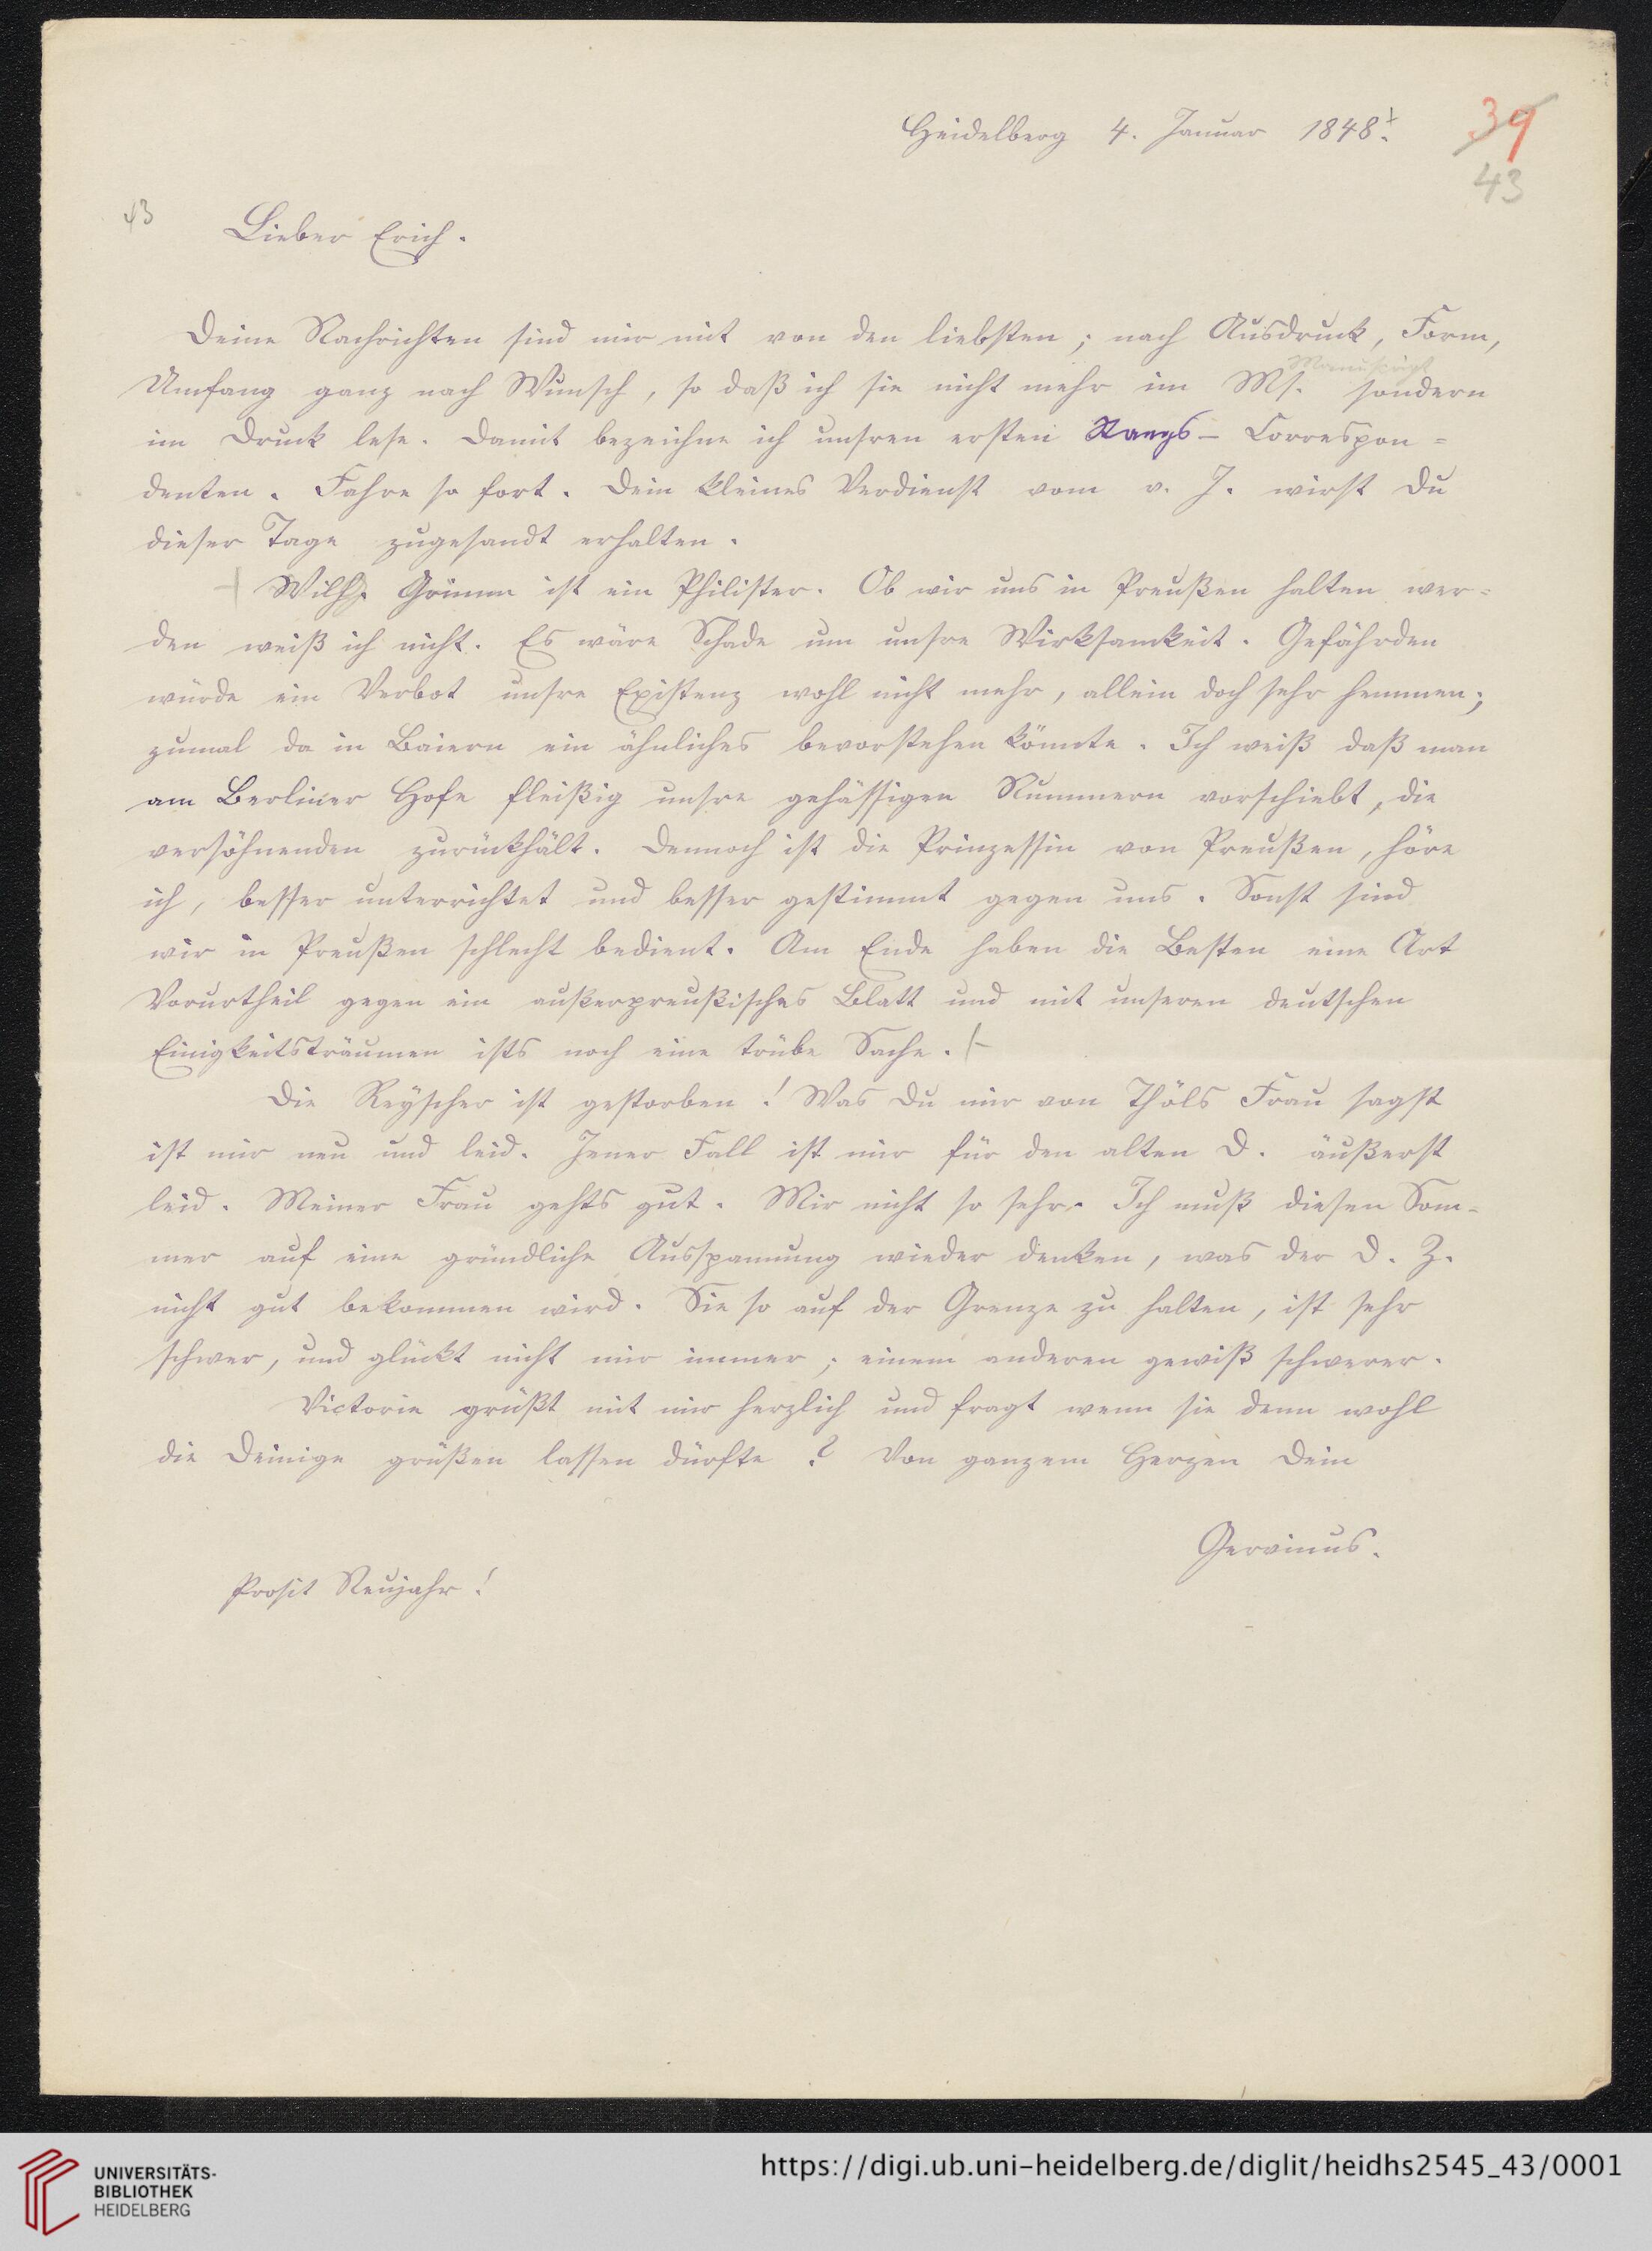 Heidelberg 4. Januar 1848.
39
43
43
Lieber Erich.
Deine Nachrichten sind mir mit von den liebsten; nach Ausdruck, Form,
Manuskript
Umfang ganz nach Wunsch, so daß ich sie nicht mehr im Ms. sondern
im Druck lese. Damit bezeichne ich unsren ersten Rangs- Correspon=
denten. Fahre so fort. Dein kleines Verdienst vom v. J. wirst Du
dieser Tage zugesandt erhalten.
Wilh. Grimm ist ein Philister. Ob wir uns in Preußen halten wer=
den weiß ich nicht. Es wäre Schade um unsre Wirksamkeit. Gefährden
würde ein Verbot unsre Existenz wohl nicht mehr, allein doch sehr hemmen;
zumal da in Baiern ein ähnliches bevorstehen könnte. Ich weiß daß man
am Berliner Hofe fleißig unsre gehässigen Nummern vorschiebt, die
versöhnenden zurückhält. Dennoch ist die Prinzessin von Preußen, höre
ich, besser unterrichtet und besser gestimmt gegen uns. Sonst sind
wir in Preußen schlecht bedient. Am Ende haben die Besten eine Art
Vorurtheil gegen ein außerpreußisches Blatt und mit unseren deutschen
Einigkeitsträumen ists noch eine trübe Sache.
Die Reyscher ist gestorben! Was Du mir von Thöls Frau sagst
ist mir neu und leid. Jener Fall ist mir für den alten D. äußerst
leid. Meiner Frau gehts gut. Mir nicht so sehr. Ich muß diesen Som=
mer auf eine gründliche Ausspannung wieder denken, was der D. Z.
nicht gut bekommen wird. Sie so auf der Grenze zu halten, ist sehr
schwer, und glückt nicht mir immer; einem anderen gewiß schwerer.
Victorie grüßt mit mir herzlich und fragt wenn sie denn wohl
die Deinige grüßen lassen dürfte? Von ganzem Herzen Dein
Gervinus.
Prosit Neujahr!
UNIVERSITÄTS-
BIBLIOTHEK
HEIDELBERG
https://digi.ub.uni-heidelberg.de/diglit/heidhs2545_43/0001